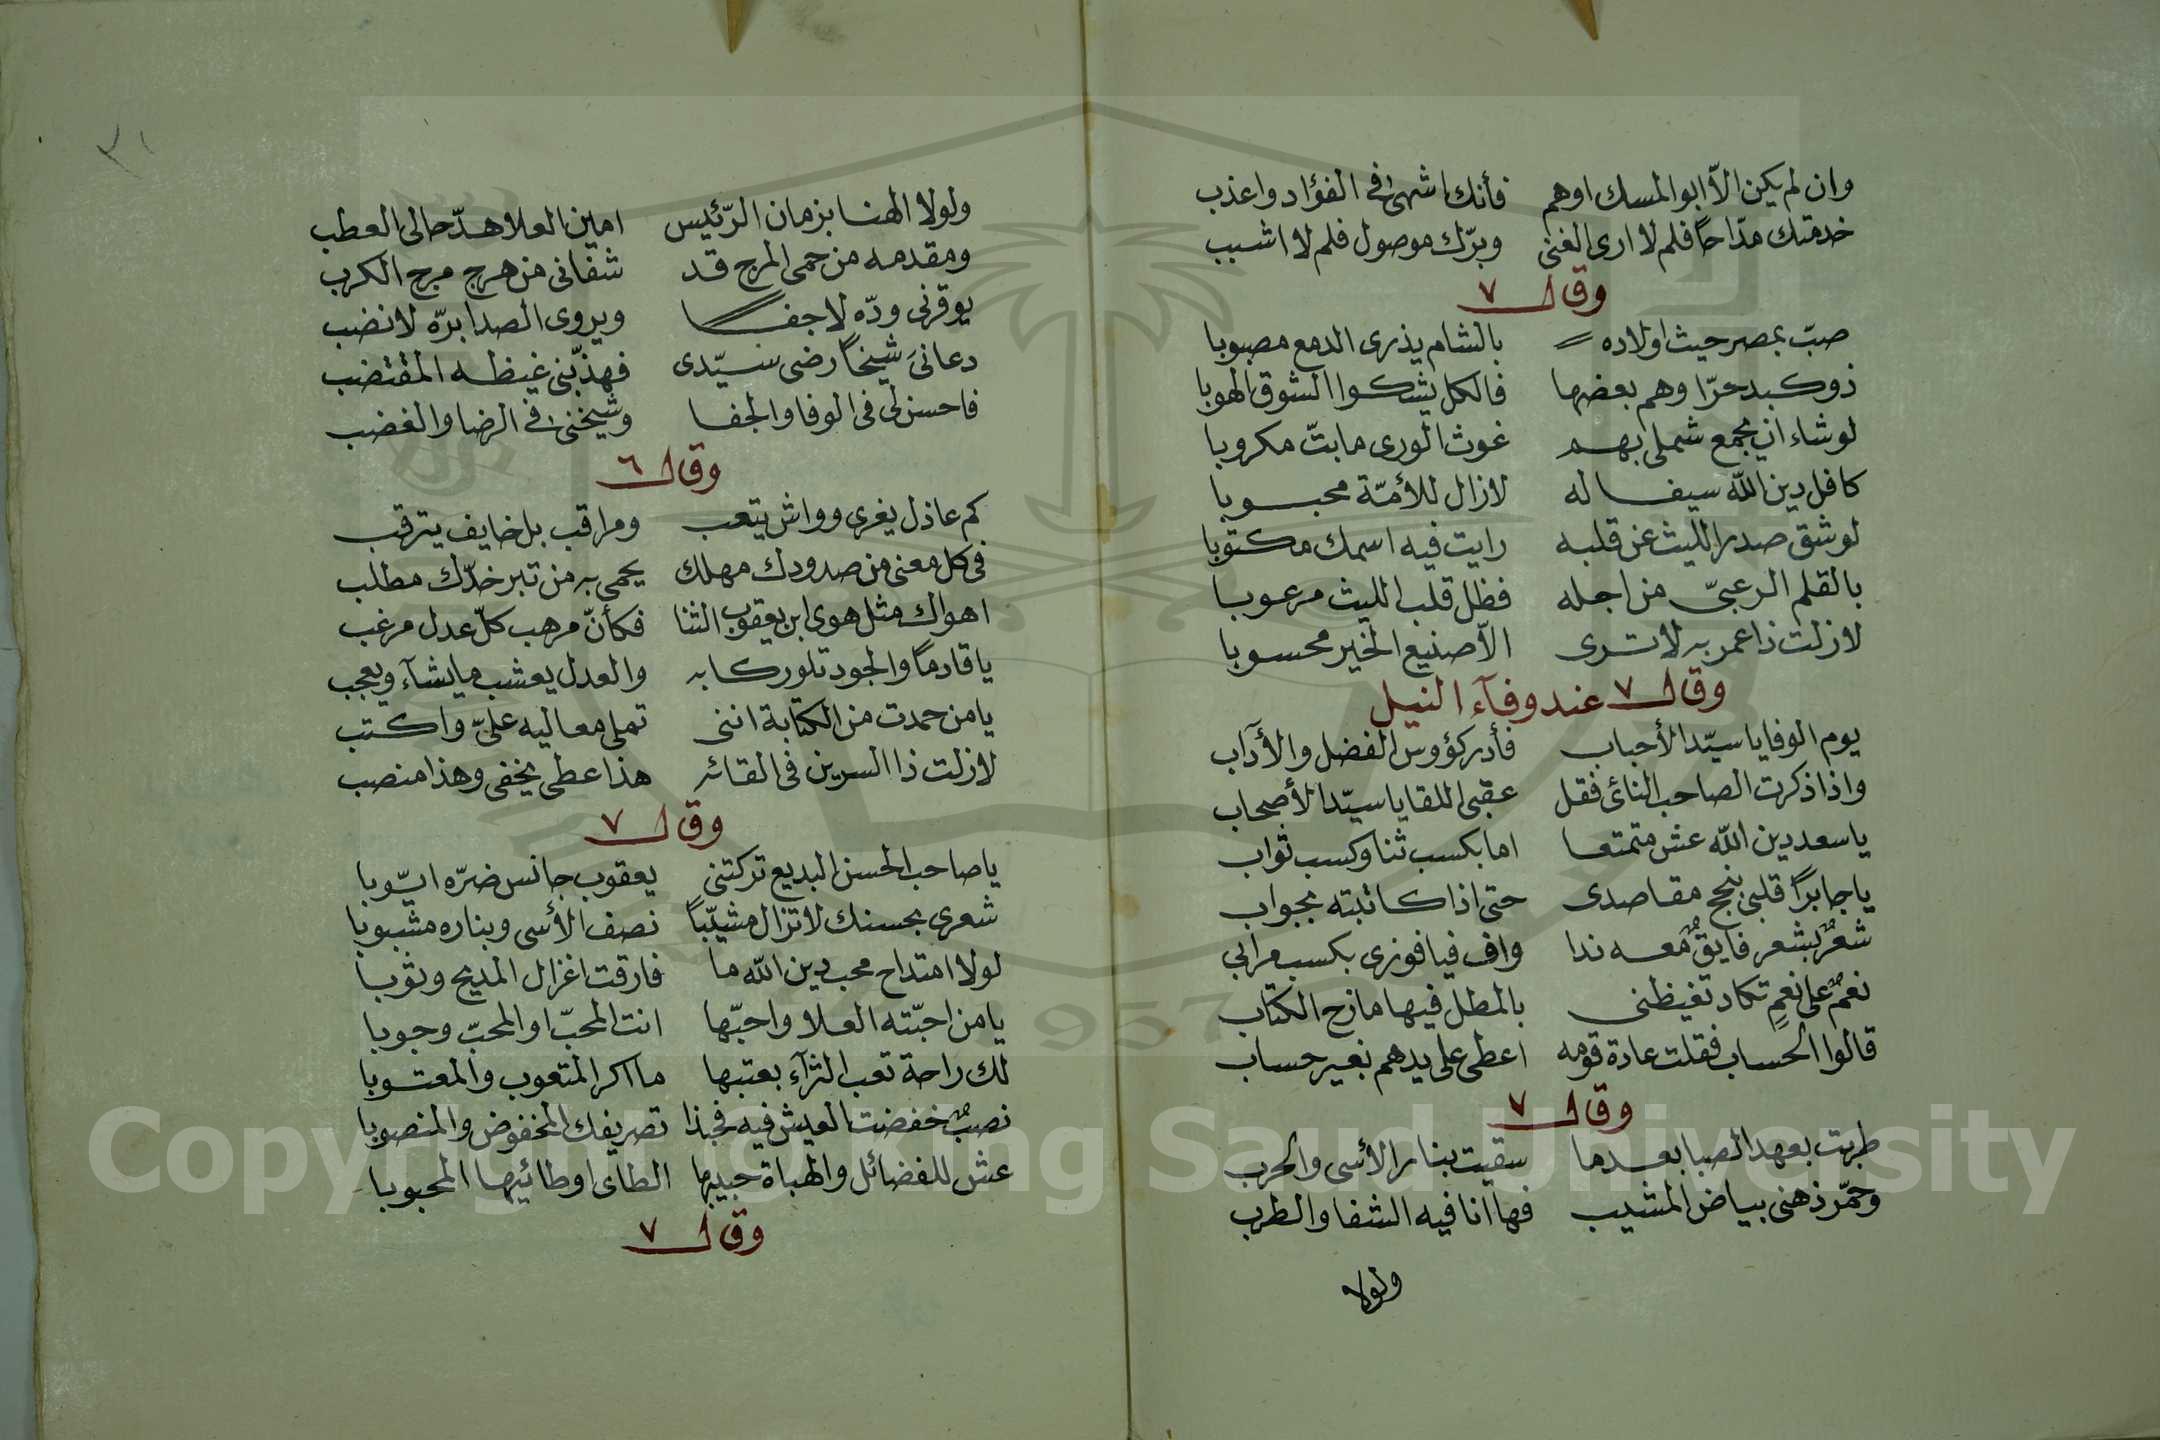 وان لم يكن الاّ ابو المسك اوهم فأنك اشهى في الفؤاد واعذب
خدمتك مدّاحاً فلم لا ارى الغنى وبرّك موصول فلم لا اشبب
وقال ٧
صبّ بمصر حيث اولاده بالشام يذرى الدمع مصبوبا
ذو كبد حرّا وهم بعضها فالكل يشكوا الشوق الهوبا
لو شاء ان يجمع شملى بهم غوث الورى ما بتّ مكروبا
كافل دين الله سيفا له لازال للأمّة محبوبا
لو شق صدر الليث عن قلبه رايت فيه اسمك مكتوبا
بالقلم الرعبىّ من اجله فظل قلب الليث مرعوبا
لازلت ذا عمر به لا ترى الاّ صنيع الخير محسوبا
وقال ٧ عند وفآء النيل
يوم الوفا يا سيّد الأحباب فأدر كؤوس الفضل والأداب
واذا ذكرت الصاحب النائى فقل عقبى اللقا يا سيّد الأصحاب
يا سعد دين الله عش متمتعا اما بكسب ثنا وكسب ثواب
يا جابراً قلبى بنجح مقاصدى حتى اذا كاتبته بجواب
شعرٌ بشعر فايقٌ معه ندا واف فيا فوزى بكسب مرابى
نعمٌ على نعمٍ تكاد تغيظنى بالمطل فيها مازح الكتاب
قالوا الحساب فقلت عادة قومه اعطى على يدهم بغير حساب
وقال ٧
طربت بعهد الصبا بعدما سقيت بنار الأسى والحرب
وحمّر ذهنى بياض المشيب فها انا فيه الشفا والطرب
ولولا
٢١
ولولا الهنا بزمان الرّئيس امين العلا هدّ حالى العطب
ومقدمه من حمى المرج قد شفانى من هرج مرج الكرب
يوقرنى ودّه لا جفا ويروى الصدا برّه لا نضب
دعانىَ شيخاً رضى سيّدى فهذبّنى غيظه المقتضب
فاحسن لى فى الوفا والجفا وشيخنى فى الرضا والغضب
وقال ٦
كم عاذل يغرى وواش يتعب ومراقب بل خايف يترقب
فى كل معنى من صدودك مهلك يحمى به من تبر خدّك مطلب
اهواك مثل هوى ابن يعقوب الثنا فكأنّ مرهب كلّ عدل مرغب
يا قادماً والجود تلو ركابه والعدل يعشب ما يشآء ويعجب
يا من حمدت من الكتابة اننى تملى معاليه علىّ واكتب
لازلت ذا السرين فى القائه هذا عطى يخفى وهذا منصب
وقال ٧
يا صاحب الحسن البديع تركتنى يعقوب جانس ضرّه ايّوبا
شعرى بحسنك لا تزال مشبّباً نصف الأسى وبناره مشبوبا
لولا امتداح محب دين الله ما فارقت اغزال المديح وثوبا
يا من احبّته العلا واحبّها انت المحبّ او المحبّ وجوبا
لك راحة تعب الثرآء بعتبها ما اكر المتعوب والمعتوبا
نصبٌ خفضت العيش فيه فحبذا تصريفك المخفوض والمنصوبا
عش للفضائل والهباة حبيبها الطاى او طائيها المحبوبا
وقال ٧